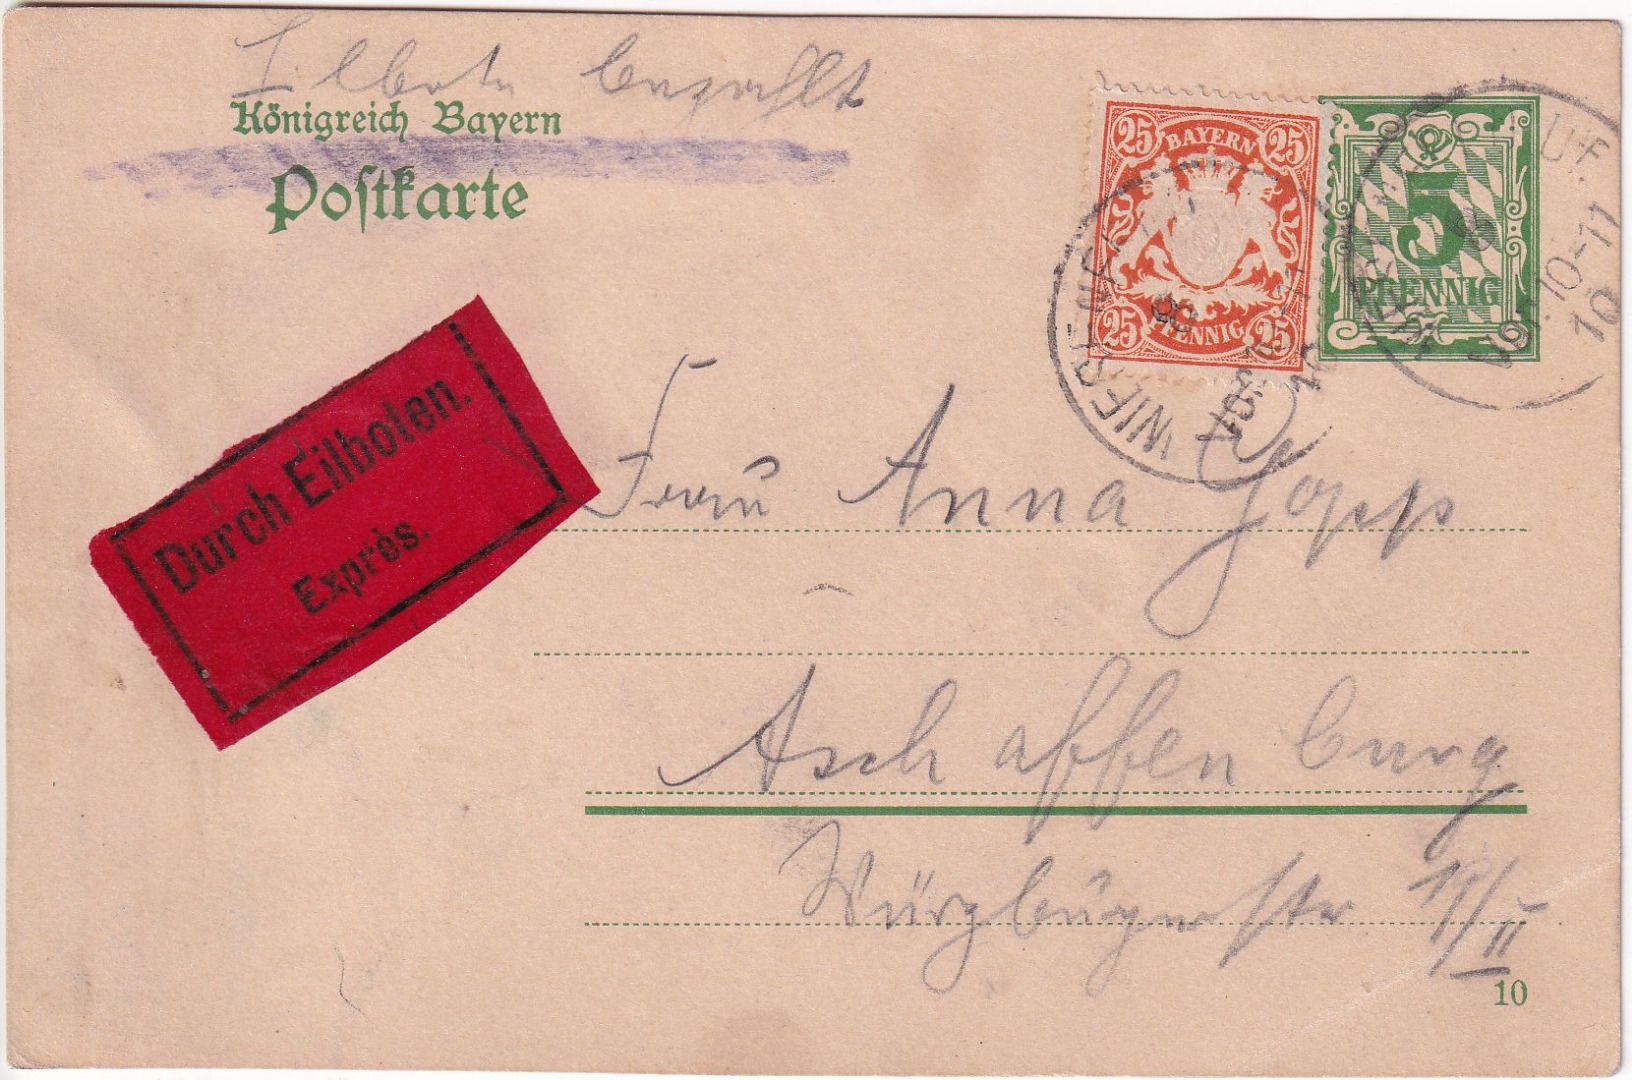 Eilbote bezahlt
Königreich Bayern
Postkarte
25 BAYERN 25
25 PFENNIG 25
5
PFENNIG
VOR. 10-11
10
Durch Eilboten.
Exprès.
Frau Anna Gopp
Aschaffenburg
Würzburgerstr 19/II
10